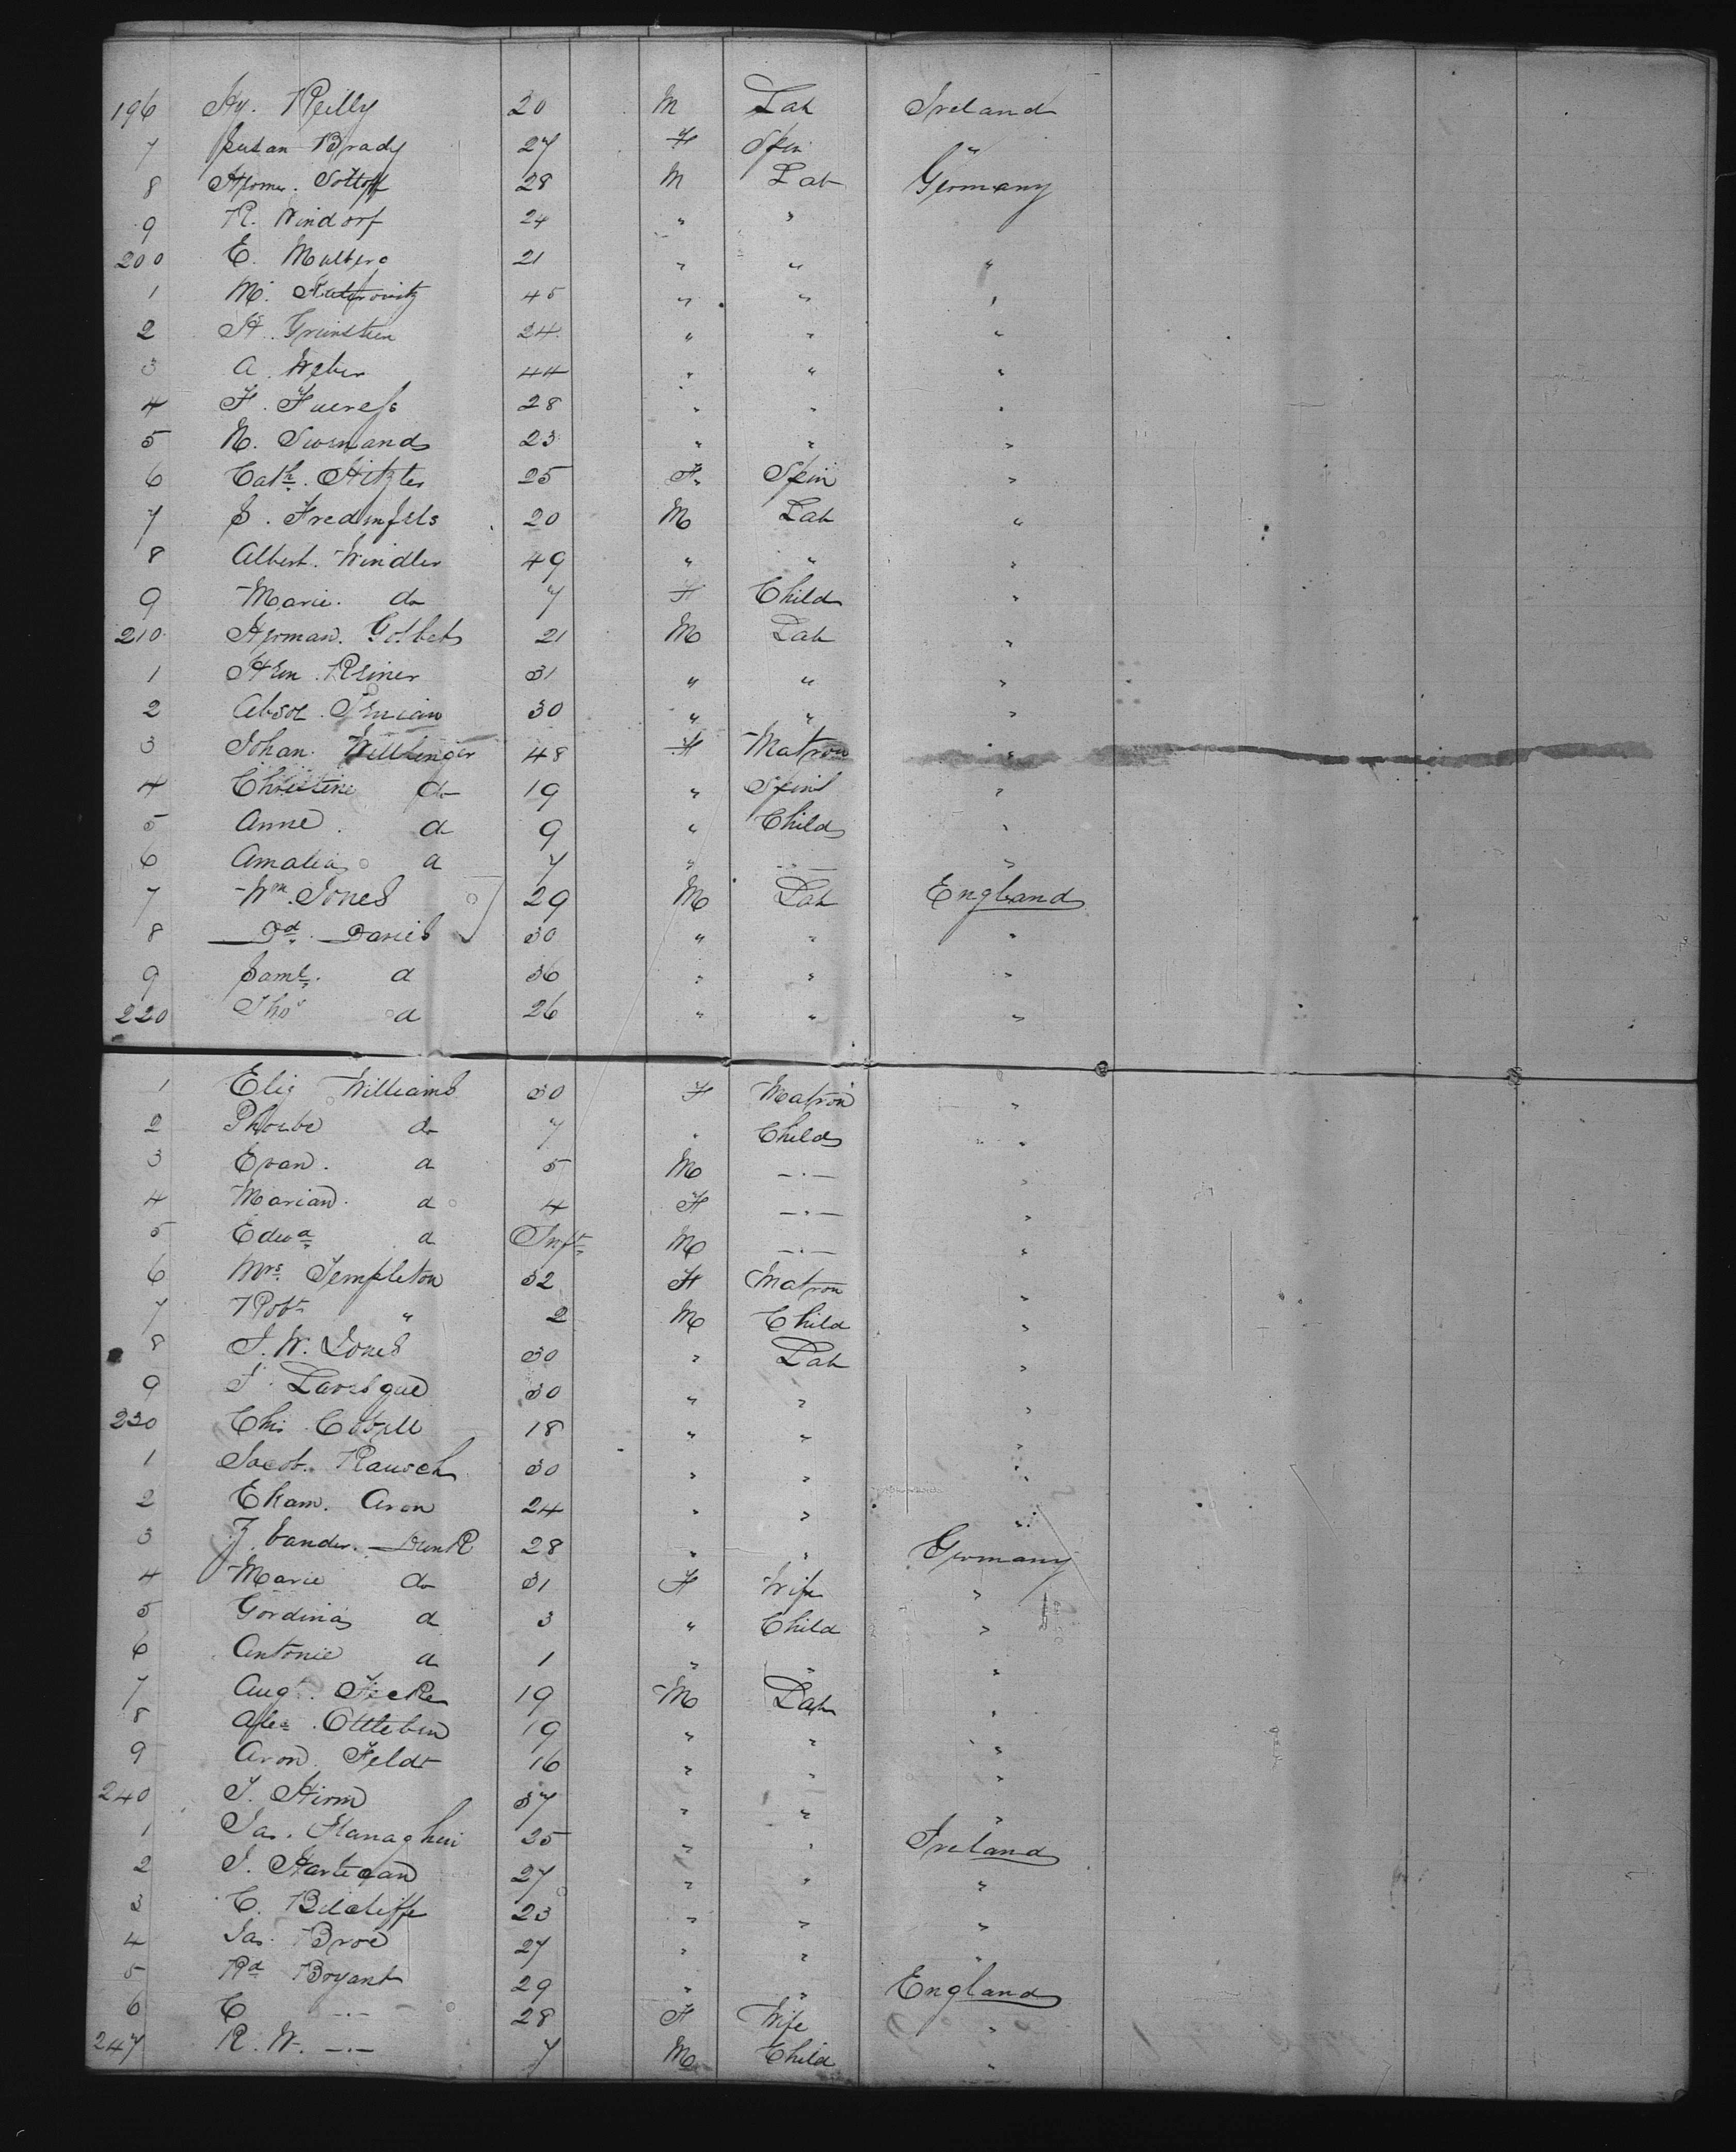 196 Hy. Reilly 20 M Lab Ireland
7 Susan Brady 27 F Spin "
8 Herm. Soltoff 28 M Lab Germany
9 R. Windorf 24 " "
200 E. Mulberg 21 " " "
1 M. 45 " " "
2 H. Grunstein 24 " " "
3 A. Weber 44 " " "
4 F. Fueress 28 " " "
5 N. 23 " " "
6 Cath. Hitzler 25 F. Spin "
7 S. Fredenfels 20 M Lab "
8 Albert. Windler 49 " " "
9 Marie. do 7 F Child "
210 Herman. Golbets 21 M Lab "
1 Hen. Reiner 31 " " "
2 30 " " "
3 Johan. Willinger 48 F Matron "
4 Christine do 19 " Spins "
5 Anne. d 9 " Child "
6 Amalia d 7 " —"— "
7 Wm. Jones 29 M Lab England
8 Dd. Davies 30 " " "
9 Saml. d 36 " " "
220 Thos d 26 " " "
1 Eliz Williams 30 F Matron "
2 Phoebe do 7 " Child "
3 Evan. d 5 M —"— "
4 Marian. d 4 F —"— "
5 Edwd d Inft M —"— "
6 Mrs. Templeton 32 F Matron "
7 Robt " 2 M Child "
8 J. W. Jones 30 " Lab "
9 30 " " "
230 18 " " "
1 Jacob. Rausch 30 " " "
2 Aron 24 " " "
3 vander. 28 " " Germany
4 Marie do 31 F Wife "
5 Gordina d 3 " Child "
6 Antonie d 1 " " "
7 Augt. Fecke 19 M Lab "
8 Alex. Ottleben 19 " " "
9 Aron. Feldt 16 " " "
240 J. Hirm 37 " " "
1 Jas. Flanaghan 25 " " Ireland
2 J. Hartigan 27 " " "
3 C. 23 " " "
4 Jas. Broe 27 " " "
5 Rd Bryant 29 " " England
6 C —"— 28 F Wife "
247 R. W. —"— 7 M Child "